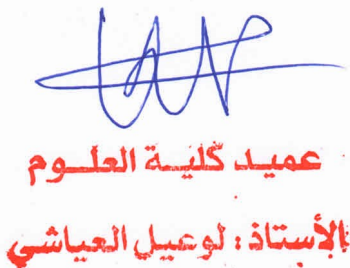 عميد كليـة العلـوم
الأستاذ : لوعيل العياشي